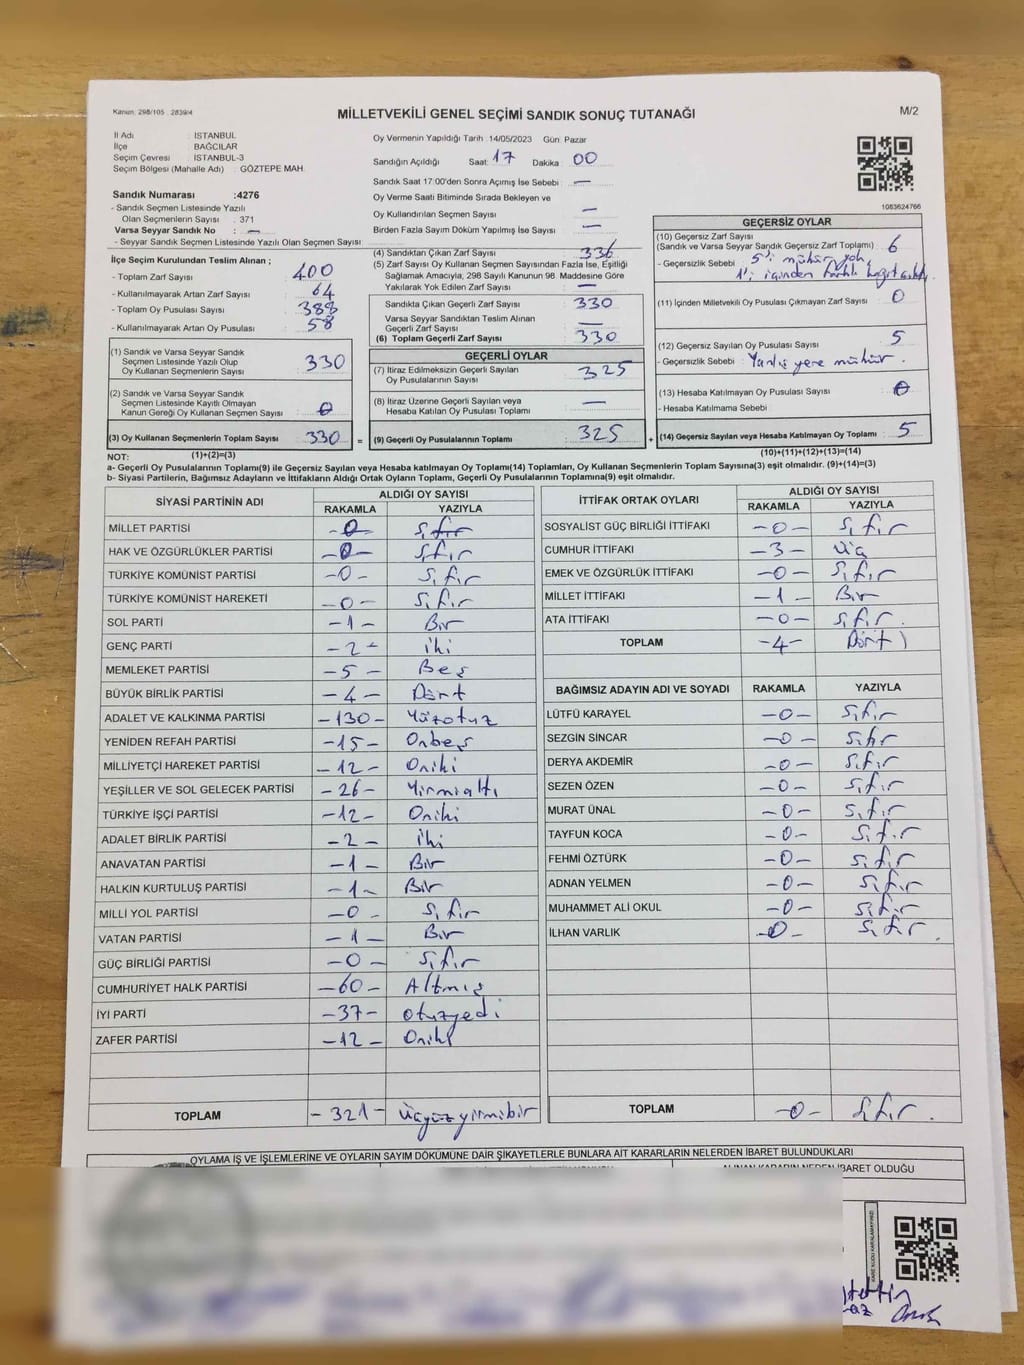 Kanun: 298/105 , 2839/4
MİLLETVEKİLİ GENEL SEÇİMİ SANDIK SONUÇ TUTANAĞI
M/2
İl Adı : İSTANBUL
İlçe : BAĞCILAR
Seçim Çevresi : İSTANBUL-3
Seçim Bölgesi (Mahalle Adı) : GÖZTEPE MAH.
Oy Vermenin Yapıldığı Tarih : 14/05/2023 Gün: Pazar
Sandığın Açıldığı Saat: 17 Dakika : 00
Sandık Saat 17:00'den Sonra Açılmış İse Sebebi : —
Oy Verme Saati Bitiminde Sırada Bekleyen ve
Oy Kullandırılan Seçmen Sayısı —
Birden Fazla Sayım Döküm Yapılmış İse Sayısı —
1083624766
Sandık Numarası :4276
- Sandık Seçmen Listesinde Yazılı
Olan Seçmenlerin Sayısı : 371
Varsa Seyyar Sandık No : —
- Seyyar Sandık Seçmen Listesinde Yazılı Olan Seçmen Sayısı
İlçe Seçim Kurulundan Teslim Alınan ;
- Toplam Zarf Sayısı : 400
- Kullanılmayarak Artan Zarf Sayısı : 64
- Toplam Oy Pusulası Sayısı : 388
- Kullanılmayarak Artan Oy Pusulası : 58
(1) Sandık ve Varsa Seyyar Sandık
Seçmen Listesinde Yazılı Olup
Oy Kullanan Seçmenlerin Sayısı : 330
(2) Sandık ve Varsa Seyyar Sandık
Seçmen Listesinde Kayıtlı Olmayan
Kanun Gereği Oy Kullanan Seçmen Sayısı : 0
(3) Oy Kullanan Seçmenlerin Toplam Sayısı : 330
(4) Sandıktan Çıkan Zarf Sayısı : 336
(5) Zarf Sayısı Oy Kullanan Seçmen Sayısından Fazla İse, Eşitliği
Sağlamak Amacıyla, 298 Sayılı Kanunun 98. Maddesine Göre
Yakılarak Yok Edilen Zarf Sayısı : —
Sandıkta Çıkan Geçerli Zarf Sayısı : 330
Varsa Seyyar Sandıktan Teslim Alınan
Geçerli Zarf Sayısı : —
(6) Toplam Geçerli Zarf Sayısı : 330
GEÇERLİ OYLAR
(7) İtiraz Edilmeksizin Geçerli Sayılan
Oy Pusulalarının Sayısı : 325
(8) İtiraz Üzerine Geçerli Sayılan veya
Hesaba Katılan Oy Pusulası Toplamı : —
= (9) Geçerli Oy Pusulalarının Toplamı : 325
GEÇERSİZ OYLAR
(10) Geçersiz Zarf Sayısı
(Sandık ve Varsa Seyyar Sandık Geçersiz Zarf Toplamı) : 6
- Geçersizlik Sebebi : 5'i mühür yok,
1'i içinden farklı kağıt çıktı
(11) İçinden Milletvekili Oy Pusulası Çıkmayan Zarf Sayısı : 0
(12) Geçersiz Sayılan Oy Pusulası Sayısı : 5
- Geçersizlik Sebebi : Yanlış yere mühür .
(13) Hesaba Katılmayan Oy Pusulası Sayısı : 0
- Hesaba Katılmama Sebebi
+ (14) Geçersiz Sayılan veya Hesaba Katılmayan Oy Toplamı : 5
NOT: (1)+(2)=(3)
(10)+(11)+(12)+(13)=(14)
a- Geçerli Oy Pusulalarının Toplamı(9) ile Geçersiz Sayılan veya Hesaba katılmayan Oy Toplamı(14) Toplamları, Oy Kullanan Seçmenlerin Toplam Sayısına(3) eşit olmalıdır. (9)+(14)=(3)
b- Siyasi Partilerin, Bağımsız Adayların ve İttifakların Aldığı Ortak Oyların Toplamı, Geçerli Oy Pusulalarının Toplamına(9) eşit olmalıdır.
SİYASİ PARTİNİN ADI ALDIĞI OY SAYISI
RAKAMLA YAZIYLA
MİLLET PARTİSİ -0- Sıfır
HAK VE ÖZGÜRLÜKLER PARTİSİ -0- Sıfır
TÜRKİYE KOMÜNİST PARTİSİ -0- Sıfır
TÜRKİYE KOMÜNİST HAREKETİ -0- Sıfır
SOL PARTİ -1- Bir
GENÇ PARTİ -2- iki
MEMLEKET PARTİSİ -5- Beş
BÜYÜK BİRLİK PARTİSİ -4- Dört
ADALET VE KALKINMA PARTİSİ -130- Yüzotuz
YENİDEN REFAH PARTİSİ -15- Onbeş
MİLLİYETÇİ HAREKET PARTİSİ -12- Oniki
YEŞİLLER VE SOL GELECEK PARTİSİ -26- Yirmialtı
TÜRKİYE İŞÇİ PARTİSİ -12- Oniki
ADALET BİRLİK PARTİSİ -2- iki
ANAVATAN PARTİSİ -1- Bir
HALKIN KURTULUŞ PARTİSİ -1- Bir
MİLLİ YOL PARTİSİ -0- Sıfır
VATAN PARTİSİ -1- Bir
GÜÇ BİRLİĞİ PARTİSİ -0- Sıfır
CUMHURİYET HALK PARTİSİ -60- Altmış
İYİ PARTİ -37- Otuzyedi
ZAFER PARTİSİ -12- Oniki
TOPLAM -321- Üçyüzyirmibir
İTTİFAK ORTAK OYLARI ALDIĞI OY SAYISI
RAKAMLA YAZIYLA
SOSYALİST GÜÇ BİRLİĞİ İTTİFAKI -0- Sıfır
CUMHUR İTTİFAKI -3- Üç
EMEK VE ÖZGÜRLÜK İTTİFAKI -0- Sıfır
MİLLET İTTİFAKI -1- Bir
ATA İTTİFAKI -0- Sıfır.
TOPLAM -4- Dört
BAĞIMSIZ ADAYIN ADI VE SOYADI RAKAMLA YAZIYLA
LÜTFÜ KARAYEL -0- Sıfır
SEZGİN SİNCAR -0- Sıfır
DERYA AKDEMİR -0- Sıfır
SEZEN ÖZEN -0- Sıfır
MURAT ÜNAL -0- Sıfır
TAYFUN KOCA -0- Sıfır
FEHMİ ÖZTÜRK -0- Sıfır
ADNAN YELMEN -0- Sıfır
MUHAMMET ALİ OKUL -0- Sıfır
İLHAN VARLIK -0- Sıfır.
TOPLAM -0- Sıfır.
OYLAMA İŞ VE İŞLEMLERİNE VE OYLARIN SAYIM DÖKÜMÜNE DAİR ŞİKAYETLERLE BUNLARA AİT KARARLARIN NELERDEN İBARET BULUNDUKLARI
ALINAN KARARIN NEDEN İBARET OLDUĞU